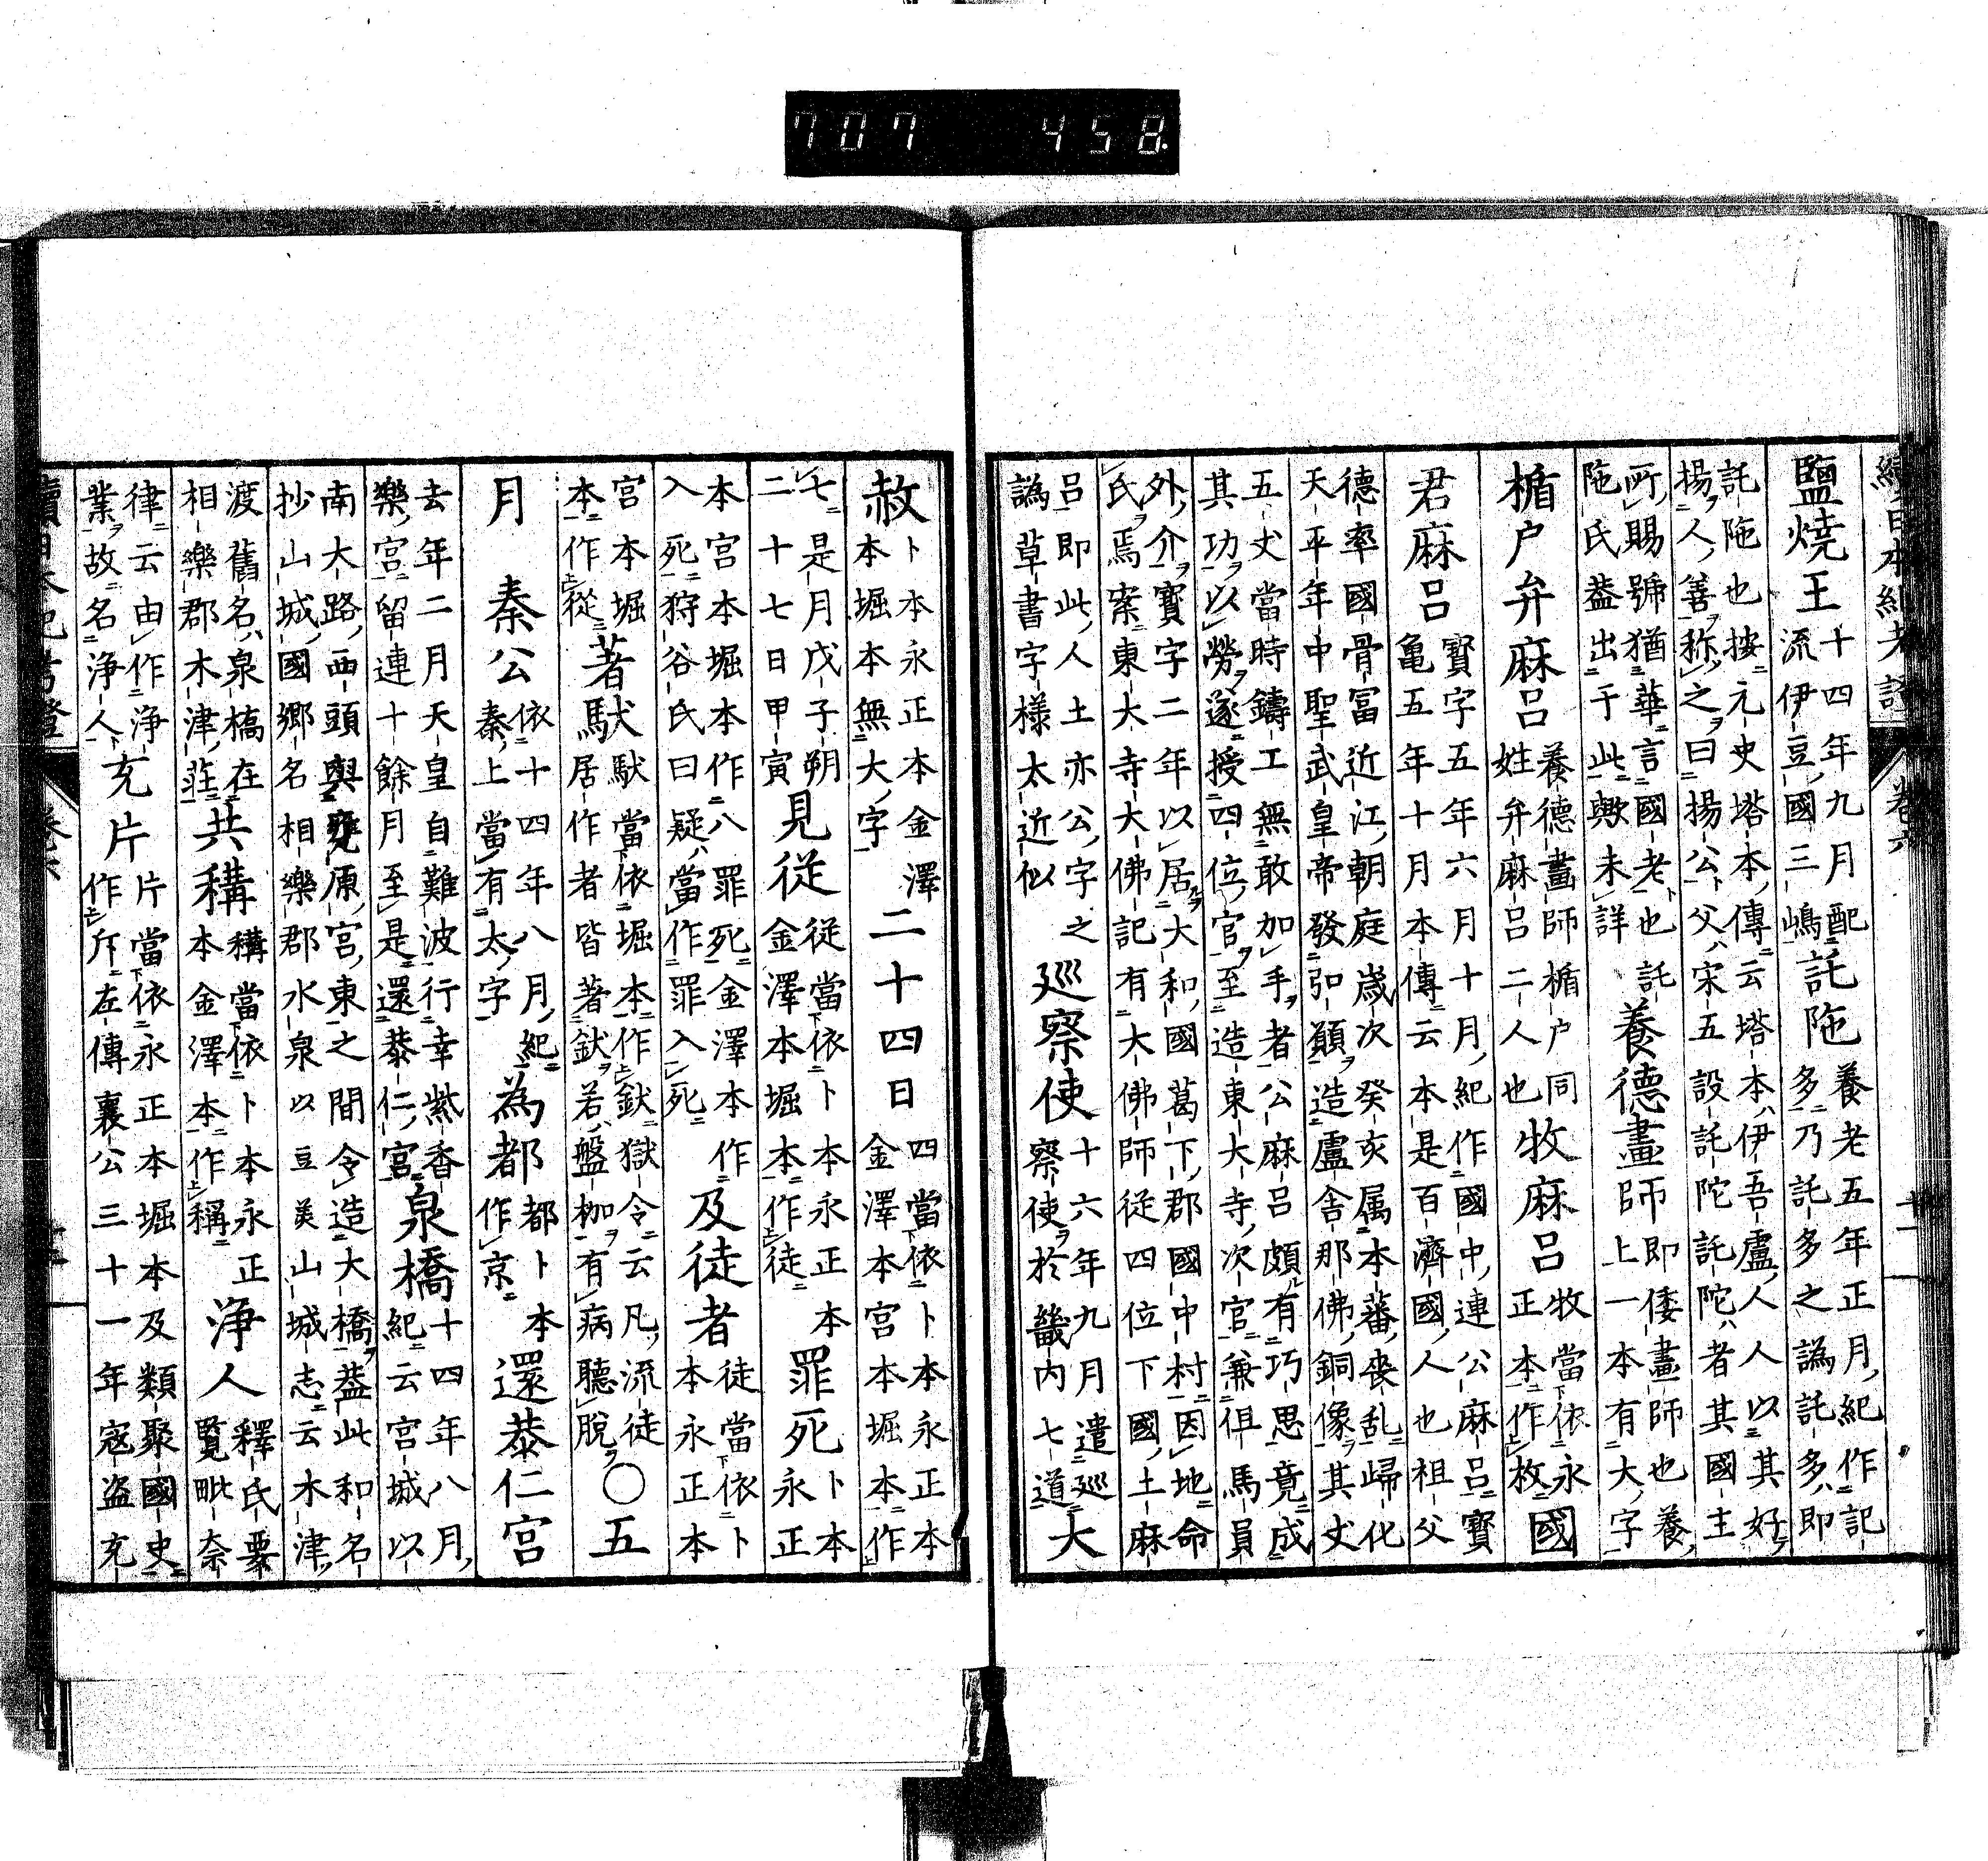 707 458.
續日本紀考證 卷六 十一
鹽燒王十四年九月配流伊豆國三嶋託陁養老五年正月紀作記多乃託多之譌託多即
託陁也按元史塔本傳云塔本伊吾盧人人以其好揚人善稱之曰揚公父宋五設託陀託陀者其國主
所賜號猶華言國老也託陁氏蓋出于此歟未詳養德畫師即倭畫師也養上一本有大字
楯戶弁麻呂養德畫師楯戶同姓弁麻呂二人也牧麻呂牧當依永正本作枚國
君麻呂寶字五年六月十月紀作國中連公麻呂寶龜五年十月本傳云本是百濟國人也祖父
德率國骨冨近江朝庭歲次癸亥属本蕃喪乱歸化天平年中聖武皇帝發弘願造盧舍那佛銅像其丈
五丈當時鑄工無敢加手者公麻呂頗有巧思竟成其功以勞遂授四位官至造東大寺次官兼但馬員
外介寶字二年以居大和國葛下郡國中村因地命氏焉案東大寺大佛記有大佛師從四位下國土麻
呂即此人土亦公字之譌草書字樣太近似巡察使十六年九月遣巡察使於畿內七道大
赦卜本永正本金澤本堀本無大字二十四日四當依卜本永正本金澤本宮本堀本作
七是月戊子朔二十七日甲寅見從從當依卜本永正本金澤本堀本作徒罪死卜本永正
本宮本堀本作八罪死金澤本作入死狩谷氏曰疑當作罪入死及徒者徒當依卜本永正本
宮本堀本作從著馱馱當依堀本作釱獄令云凡流徒居作者皆著釱若盤枷有病聽脫○五
月秦公依十四年八月紀秦上當有太字為都都卜本作京還恭仁宮
去年二月天皇自難波行幸紫香樂宮留連十餘月至是還恭仁宮泉橋十四年八月紀云宮城以
南大路西頭與甕原宮東之間令造大橋蓋此和名抄山城國鄉名相樂郡水泉以豆美山城志云木津
渡舊名泉橋在相樂郡木津莊共稱稱當依卜本永正本金澤本作稱淨人釋氏要覽毗奈
律云由作淨業故名淨人充片片當依永正本堀本及類聚國史作斥左傳襄公三十一年寇盜充
續日本紀考證 卷六 十二